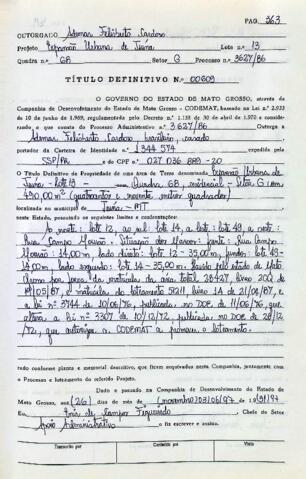 PAG. 263
OUTORGADO Ademar Felisberto Cardoso
Projeto Expansão Urbana de Juína Lote n.º 13
Quadra n.º GB Setor G Processo n.º 3627/86
TÍTULO DEFINITIVO N.º 00609
O GOVERNO DO ESTADO DE MATO GROSSO, através da
Companhia de Desenvolvimento do Estado de Mato Grosso - CODEMAT, baseado na Lei n.º 2.933
de 10 de junho de 1.969, regulamentada pelo Decreto n.º 1.138 de 30 de abril de 1.970 e considerando
o que consta do Processo Administrativo n.º 3627/86 Outorga a
Ademar Felisberto Cardoso brasileiro, casado
portador da Carteira de Identidade n.º 1 344 574 expedida pela
SSP/PR e do CPF n.º 027 036 889-20
O Título Definitivo de Propriedade de uma área de Terras denominada Expansão Urbana de
Juína - lote 13 - Quadra GB, residencial - Setor G
490,00 m² (quatrocentos e noventa metros quadrados)
localizada no município de Juína - MT
neste Estado, possuindo os seguintes limites e confrontações:
norte: lote 12, ao sul: lote 14, a leste: lote 43, a oeste:
Rua Campo Mourão - Situação dos Marcos: frente: Rua Campo
Mourão: 14,00m, lado direito: lote 12 - 35,00m, fundos: lote 43 -
14,00m, lado esquerdo: lote 14 - 35,00m.
matrícula da área total, 36427, livro
e matrícula do loteamento 5211, livro 1A de 21/08/87,
a lei nº 3744 de 10/06/76, publicada no DOE de 11/06/76, que
altera a lei nº 3307 de 10/12/72, publicada no DOE de 28/12
/72, que autoriza a CODEMAT a promover o loteamento.
tudo conforme planta e memorial descritivo, que ficam arquivados nesta Companhia, juntamente com
o Processo e loteamento do referido Projeto.
Dado e passado na Companhia de Desenvolvimento do Estado de
Mato Grosso, aos (26) dias do mês de (novembro)
Eu, Inês de Campos Figueiredo Chefe do Setor
Apoio Administrativo o fiz escrever e assino.
Transcrito por Conferido por Visto